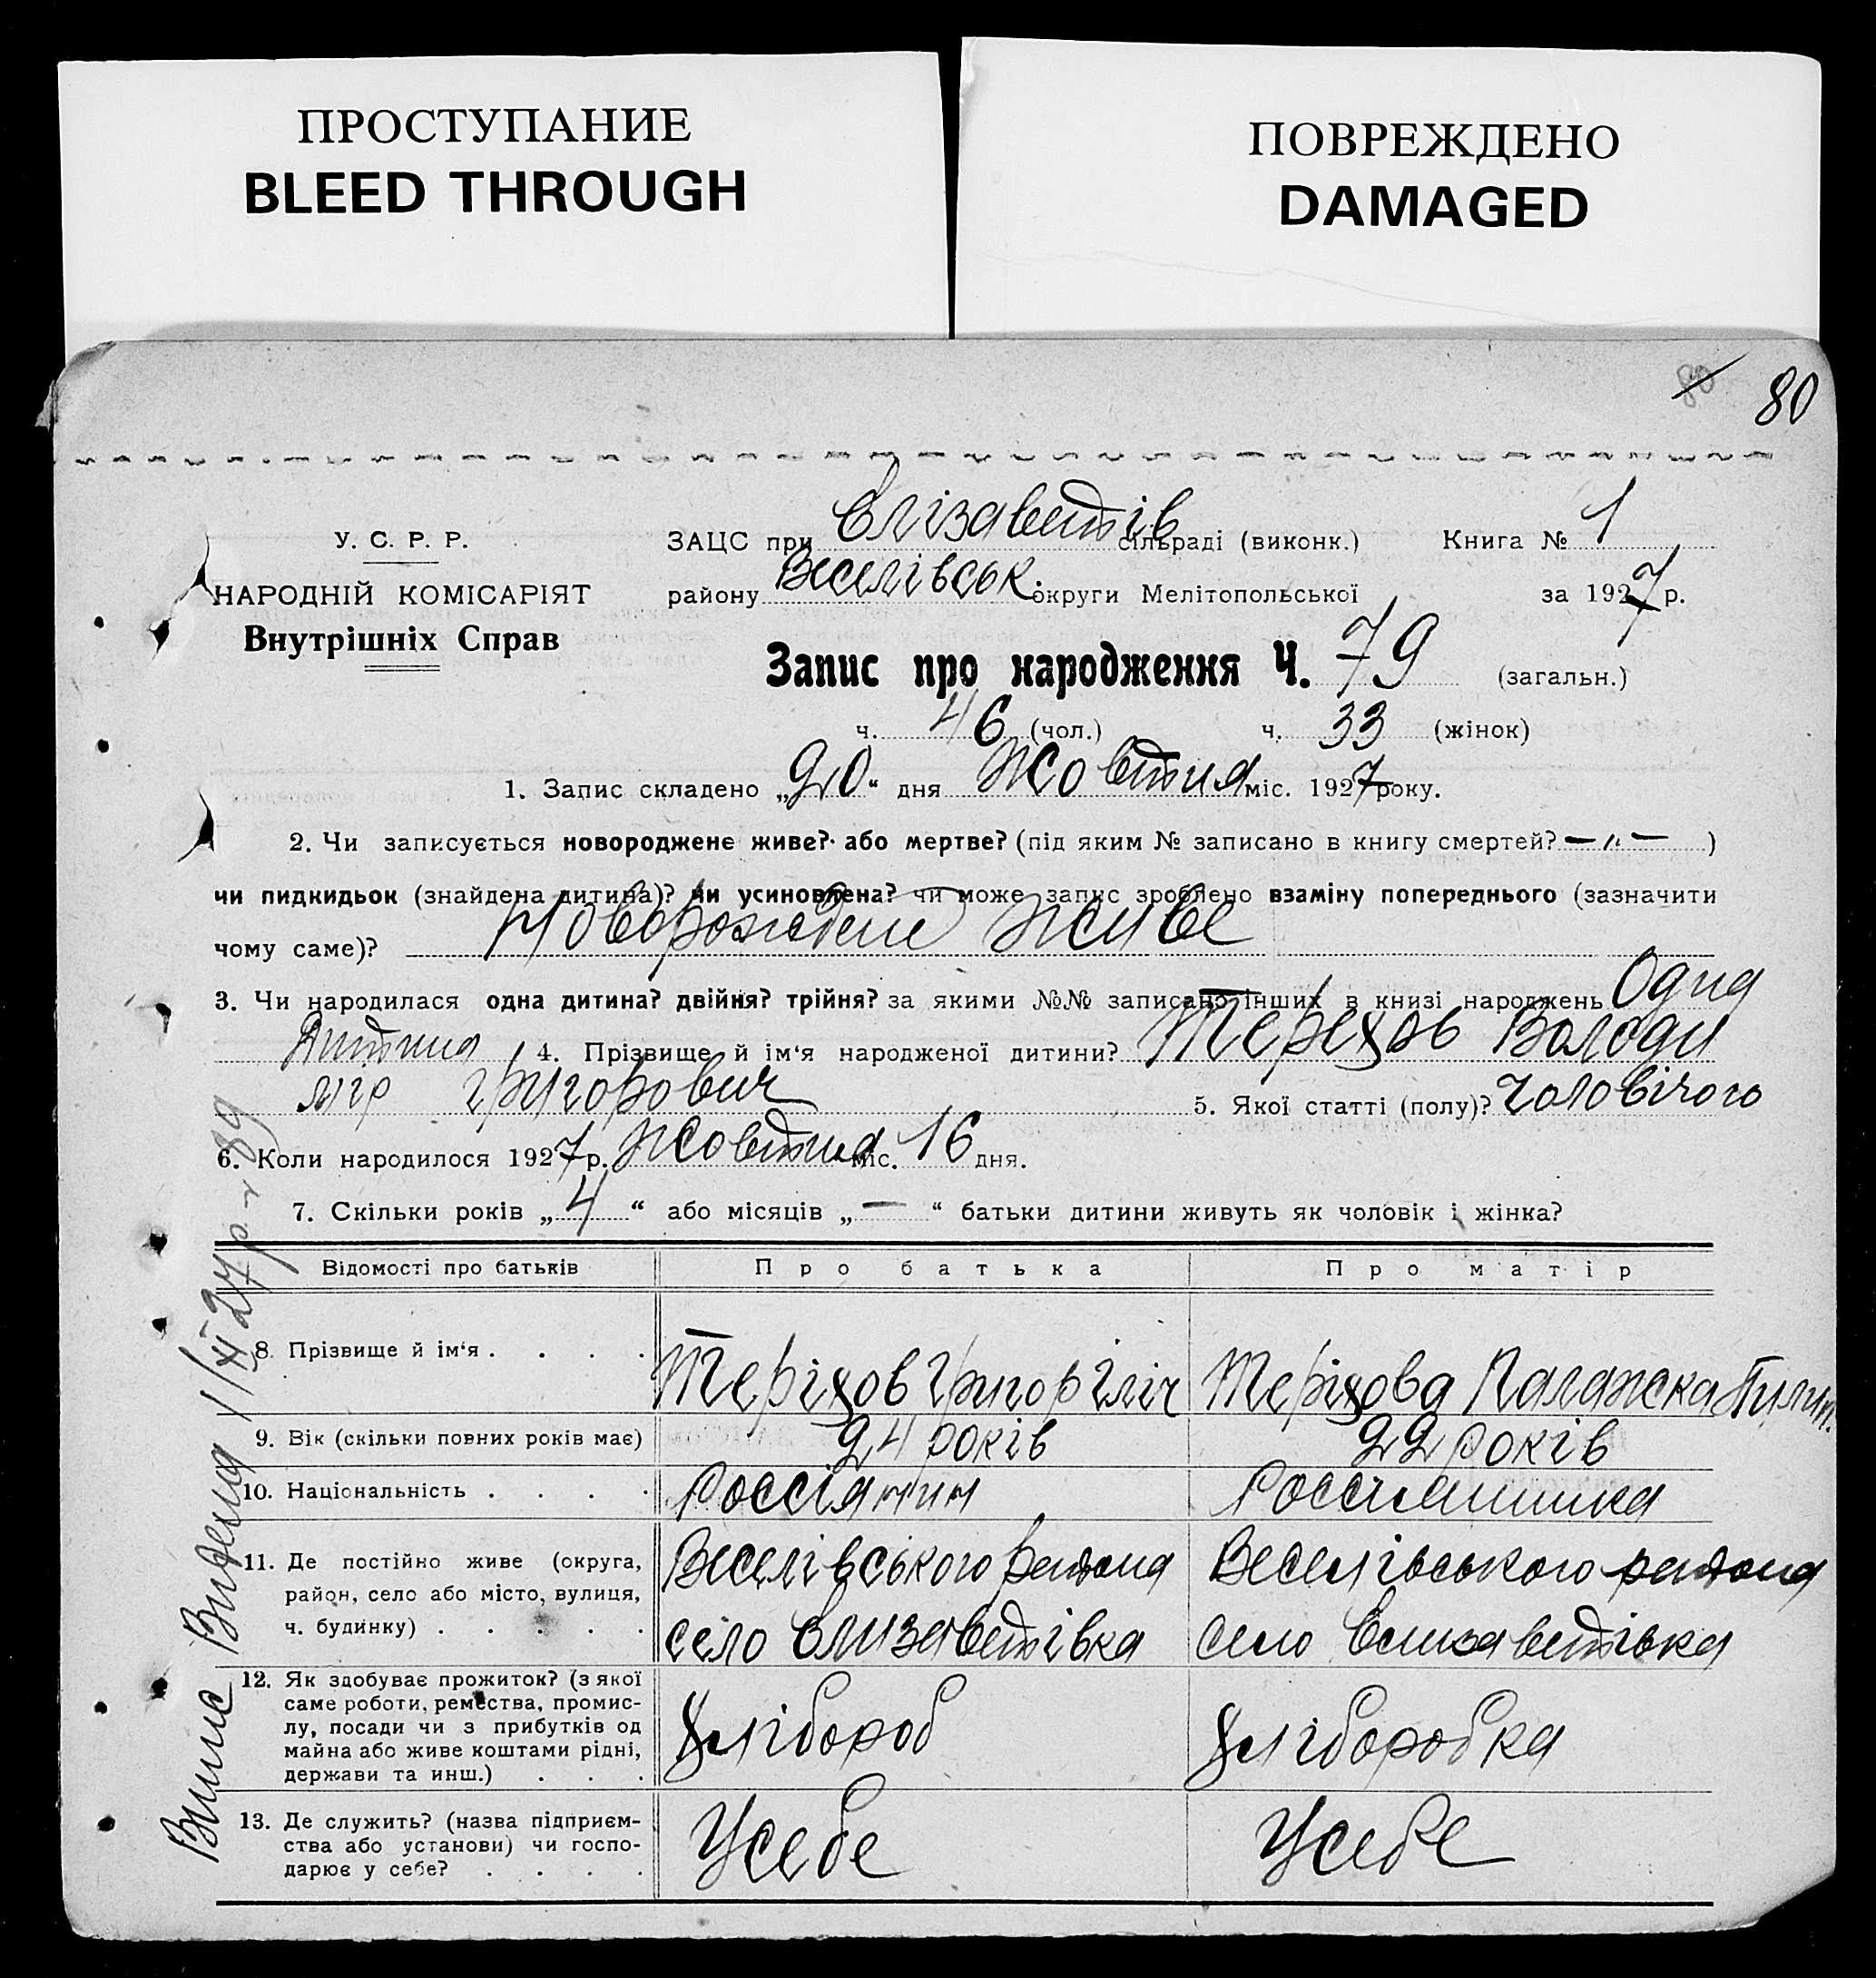 ПРОСТУПАНИЕ
BLEED THROUGH
ПОВРЕЖДЕНО
DAMAGED
80 80
У. С. Р. Р.
НАРОДНІЙ КОМІСАРІЯТ
Внутрішніх Справ
ЗАЦС при Єлізаветів сільраді (виконк.) Книга № 1
району Веселівськ. округи Мелітопольської за 1927 р.
Запис про народження Ч. 79 (загальн.)
ч. 46 (чол.) ч. 33 (жінок)
1. Запис складено „20“ дня Жовтня міс. 1927 року.
2. Чи записується новороджене живе? або мертве? (під яким № записано в книгу смертей? — „ — )
чи пидкидьок (знайдена дитина)? чи усиновлена? чи може запис зроблено взаміну попереднього (зазначити
чому саме)? Новорожdене живе
3. Чи народилася одна дитина? двійня? трійня? за якими №№ записано інших в книзі народжень Одна
Дитина 4. Прізвище й ім‘я народженої дитини? Терехов Володи
мір Григорович 5. Якої статті (полу)? Чоловічого
6. Коли народилося 1927 р. Жовтня міс. 16 дня.
7. Скільки років „4“ або місяців „—“ батьки дитини живуть як чоловік і жінка?
Відомості про батьків Про батька Про матір
8. Прізвище й ім‘я . . . . Теріхов Григор Іліч Теріхова Палажка Пилип.
9. Вік (скільки повних років має) 24 років 22 років
10. Національність . . . . Россіянин Россиянка
11. Де постійно живе (округа, район, село або місто, вулиця, ч. будинку) . . . . . Веселівського района село Єлизаветівка Веселівського района село Єлизаветівка
12. Як здобуває прожиток? (з якої саме роботи, ремества, промис-
лу, посади чи з прибутків од
майна або живе коштами рідні,
держави та инш.) . . . Хлібороб Хліборобка
13. Де служить? (назва підприєм-
ства або установи) чи госпо-
дарює у себе? . . . . Усебе Усебе
Випис Видена 1/XI 27 р. - 89